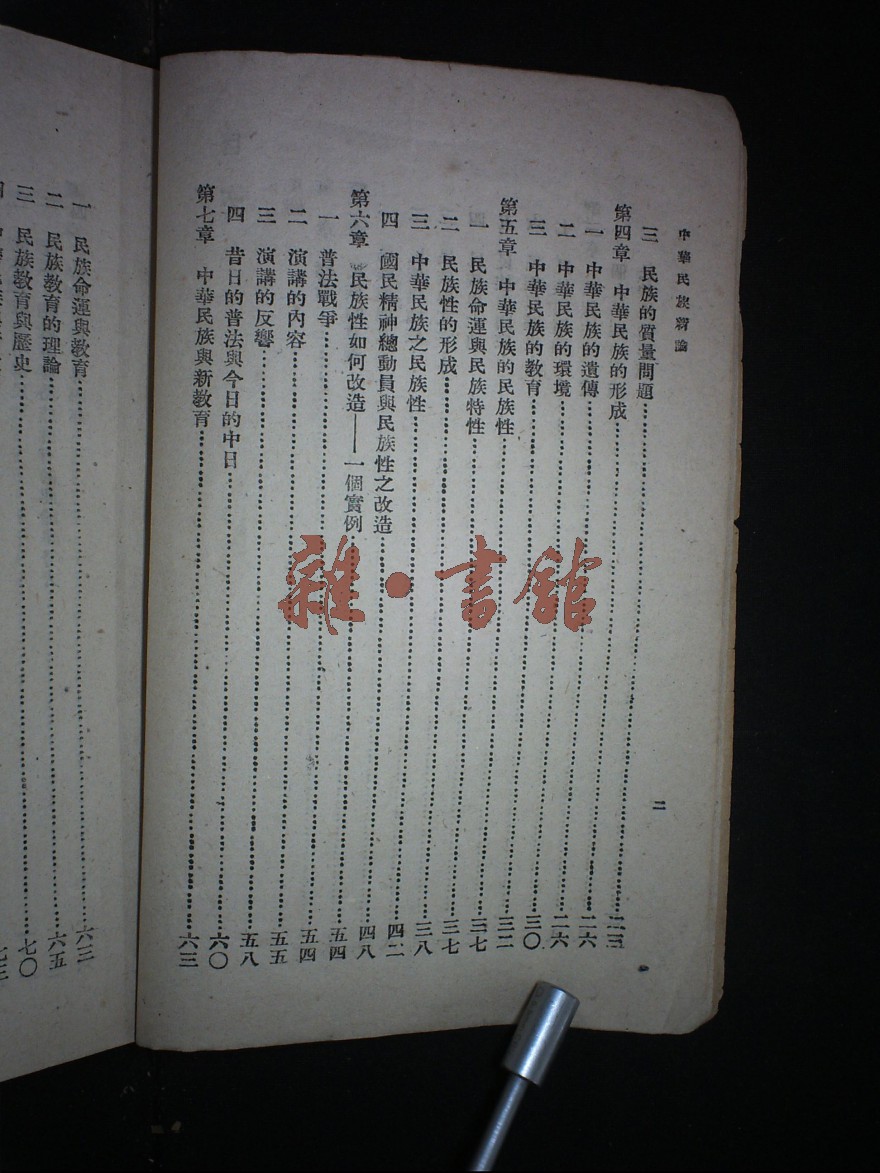 中華民族新論
三 民族的質量問題……二三
第四章 中華民族的形成……二六
一 中華民族的遺傳……二六
二 中華民族的環境……三〇
三 中華民族的教育……三二
第五章 中華民族的民族性……三七
一 民族命運與民族特性……三七
二 民族性的形成……三八
三 中華民族之民族性……四二
四 國民精神總動員與民族性之改造……四八
第六章 民族性如何改造——一個實例……五四
一 普法戰爭……五四
二 演講的內容……五五
三 演講的反響……五八
四 昔日的普法與今日的中日……六〇
第七章 中華民族與新教育……六三
二
一 民族命運與教育……六三
二 民族教育的理論……六五
三 民族教育與歷史……七〇
雜·書館